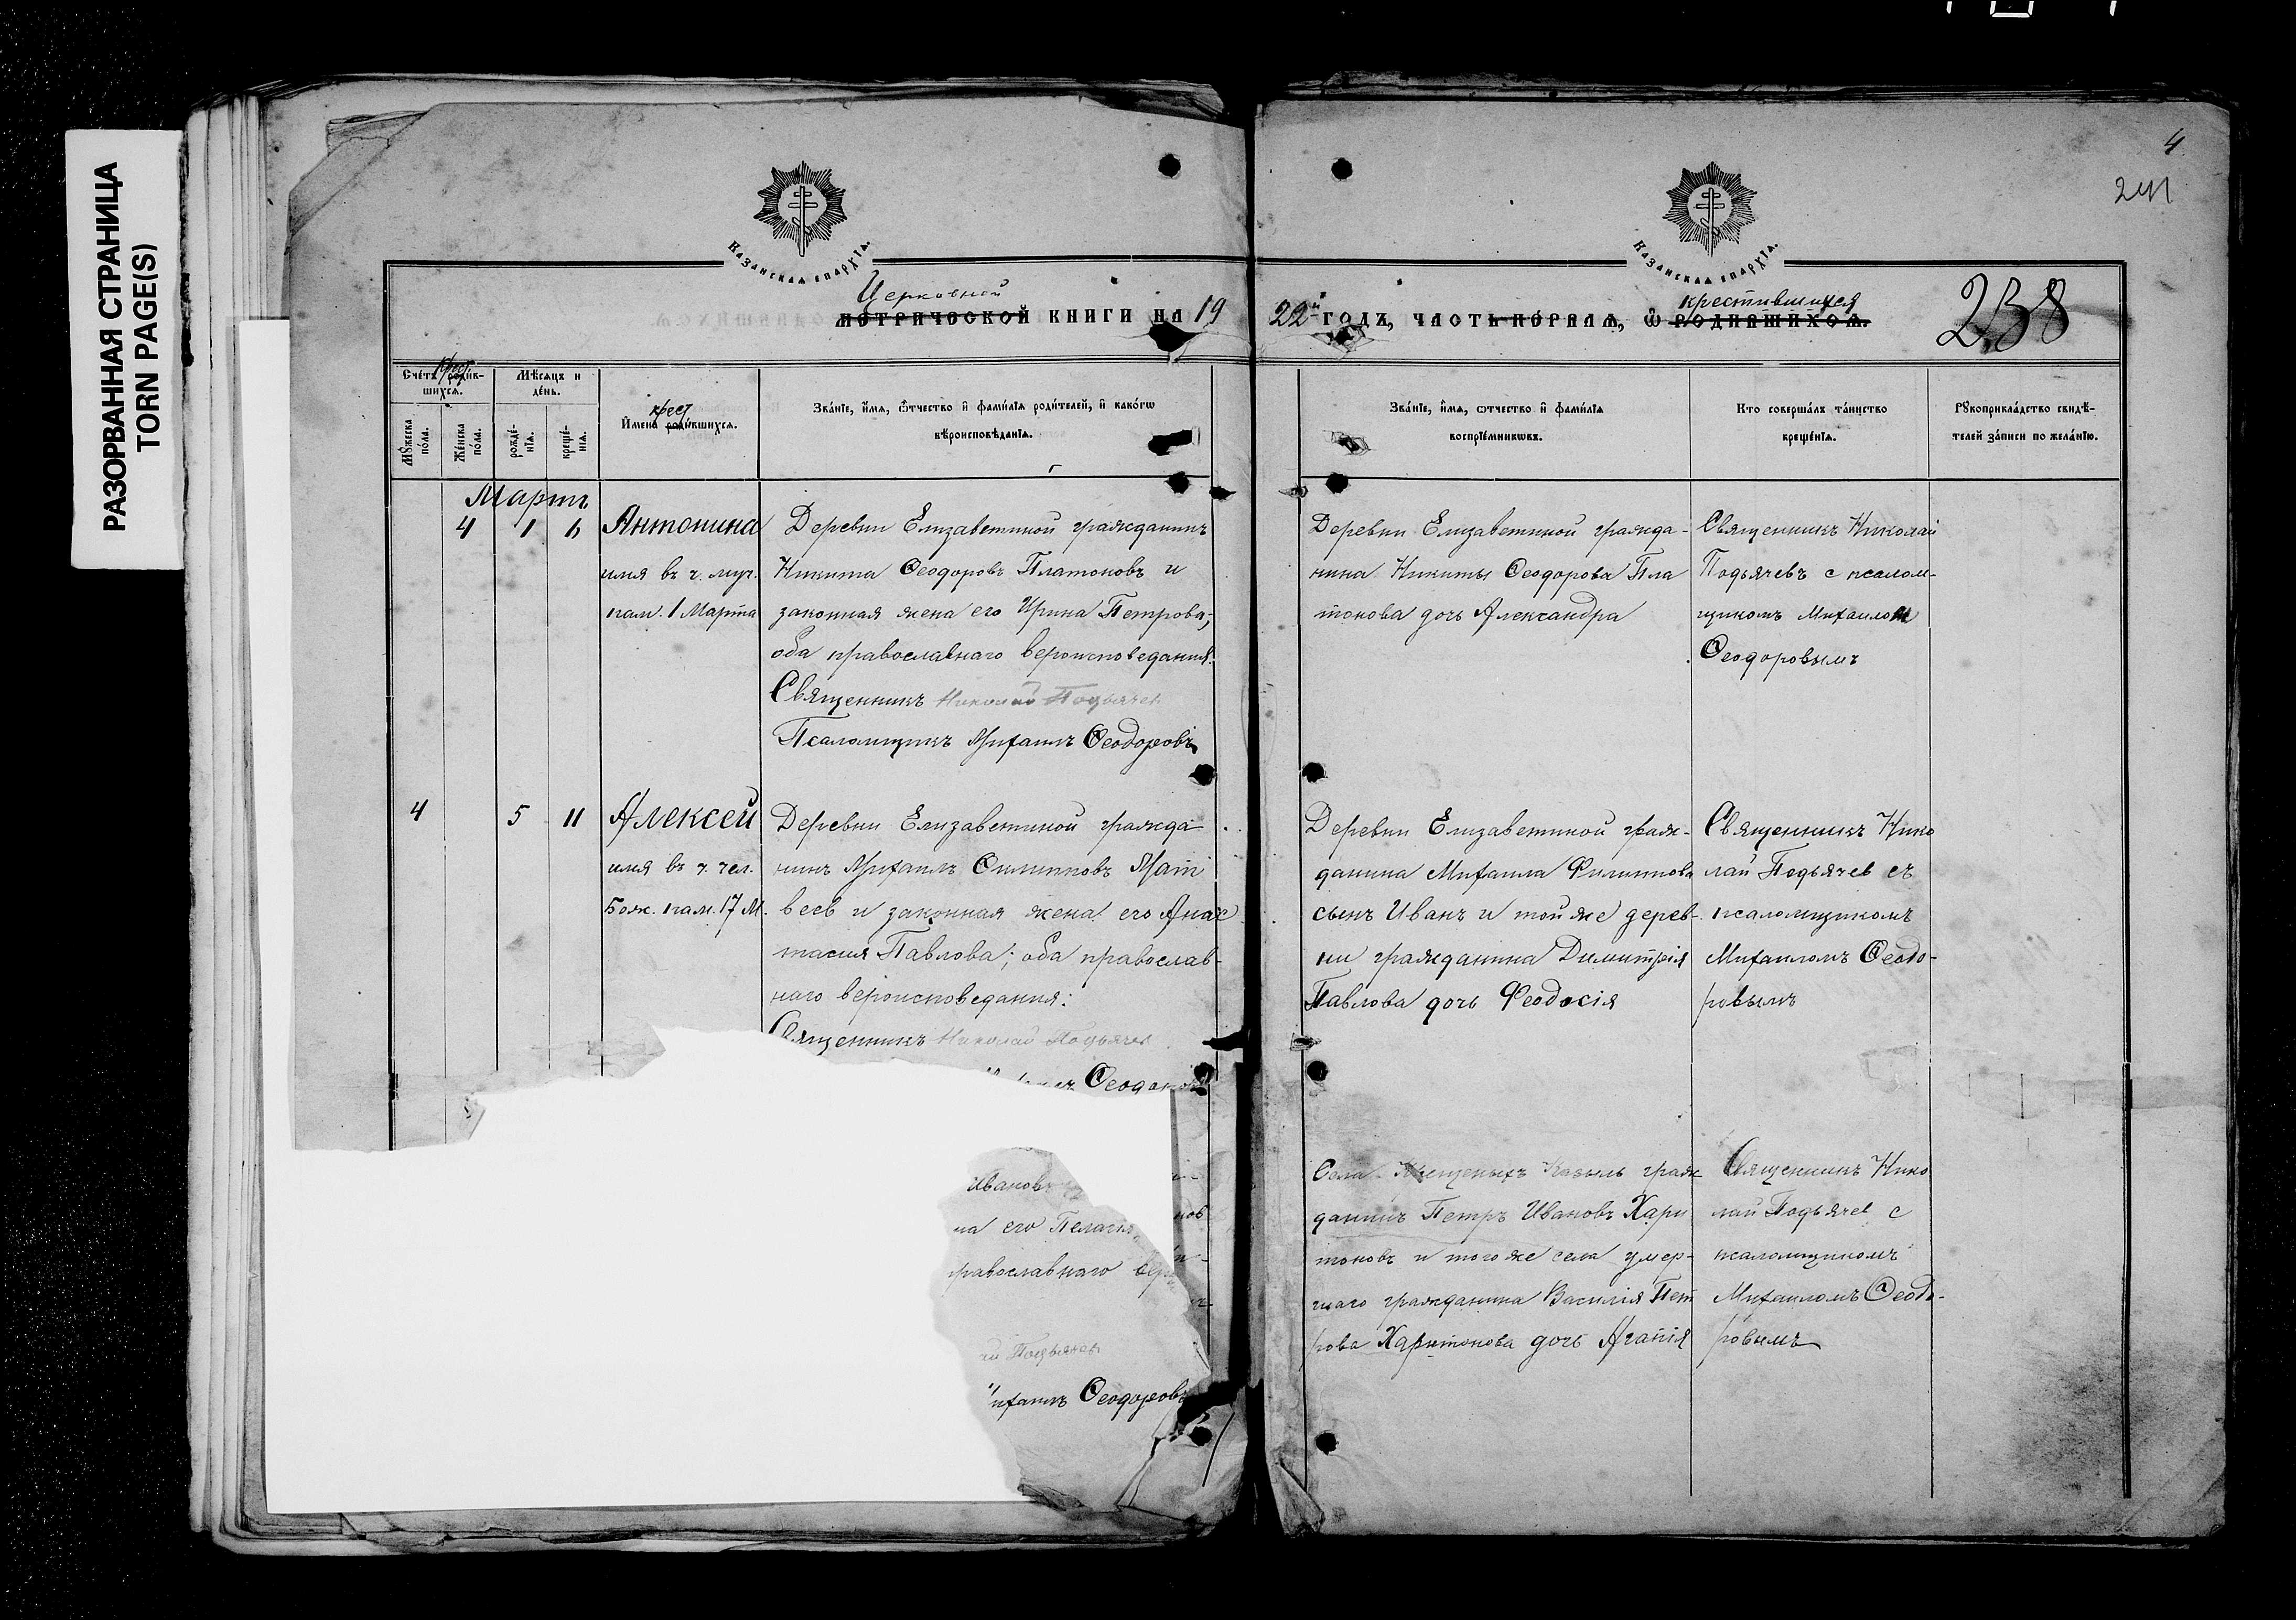 РАЗОРВАННАЯ СТРАНИЦА
TORN PAGE(S)
4
241
Казанская епархїа.
Казанская епархїа.
Церковной
крестившихся
238
метрической книги на 1922й годъ, часть первая, ѡ родившихся.
крест
Счетъ родив-
шихся.
Мѣсяцъ и
день.
Мꙋжеска пола.
Женска пола.
рожде-
нїѧ.
креще-
нїѧ.
крест
Имена родившихся.
Званїе, имѧ, ѿчество и фамилїѧ родителей, и какогѡ
вѣроисповѣданїѧ.
Званїе, имѧ, ѿчество и фамилїѧ
воспрїемникѡвъ.
Кто совершалъ таинство
крещенїѧ.
Рꙋкоприкладство свидѣ-
телей записи по желанїю.
Мартъ
4 1 6 Антонина
имя въ ч. муч.
пам. 1 Марта
Деревни Елизаветиной гражданинъ
Никита Ѳеодоровъ Платоновъ и
законная жена его Ирина Петрова;
оба православнаго вероисповедания.
Священникъ Николай Подьячев
Псаломщикъ Михаилъ Ѳеодоровъ
Деревни Елизаветиной гражда-
нина Никиты Ѳеодорова Пла
тонова дочь Александра
Священникъ Николай
Подьячевъ с псалом-
щикомъ Михаилом
Ѳеодоровымъ
4 5 11 Алексей
имя въ ч. чел.
Бож. пам. 17 М.
Деревни Елизаветиной гражда
нинъ Михаилъ Ѳилипповъ Мат
веев и законная жена его Анас
тасия Павлова; оба православ-
наго вероисповедания:
Священникъ Николай Подьячев
Ѳеодоровъ
Деревни Елизаветиной граж-
данина Михаила Филиппова
сынъ Иванъ и той же дерев-
ни гражданина Димитрія
Павлова дочь Феодосія
Священникъ Нико
лай Подьячев съ
псаломщикомъ
Михаиломъ Ѳеодо-
ровымъ
Ивановъ
на его Пелагия
православнаго вер
й Подьячев
ихаилъ Ѳеодоровъ
Села Крещеныхъ Казыль граж
данинъ Петръ Ивановъ Хари
тоновъ и того же села умер-
шаго гражданина Василія Пет
рова Харитонова дочь Агапія
Священникъ Нико
лай Подьячев с
псаломщикомъ
Михаиломъ Ѳеодо-
ровымъ